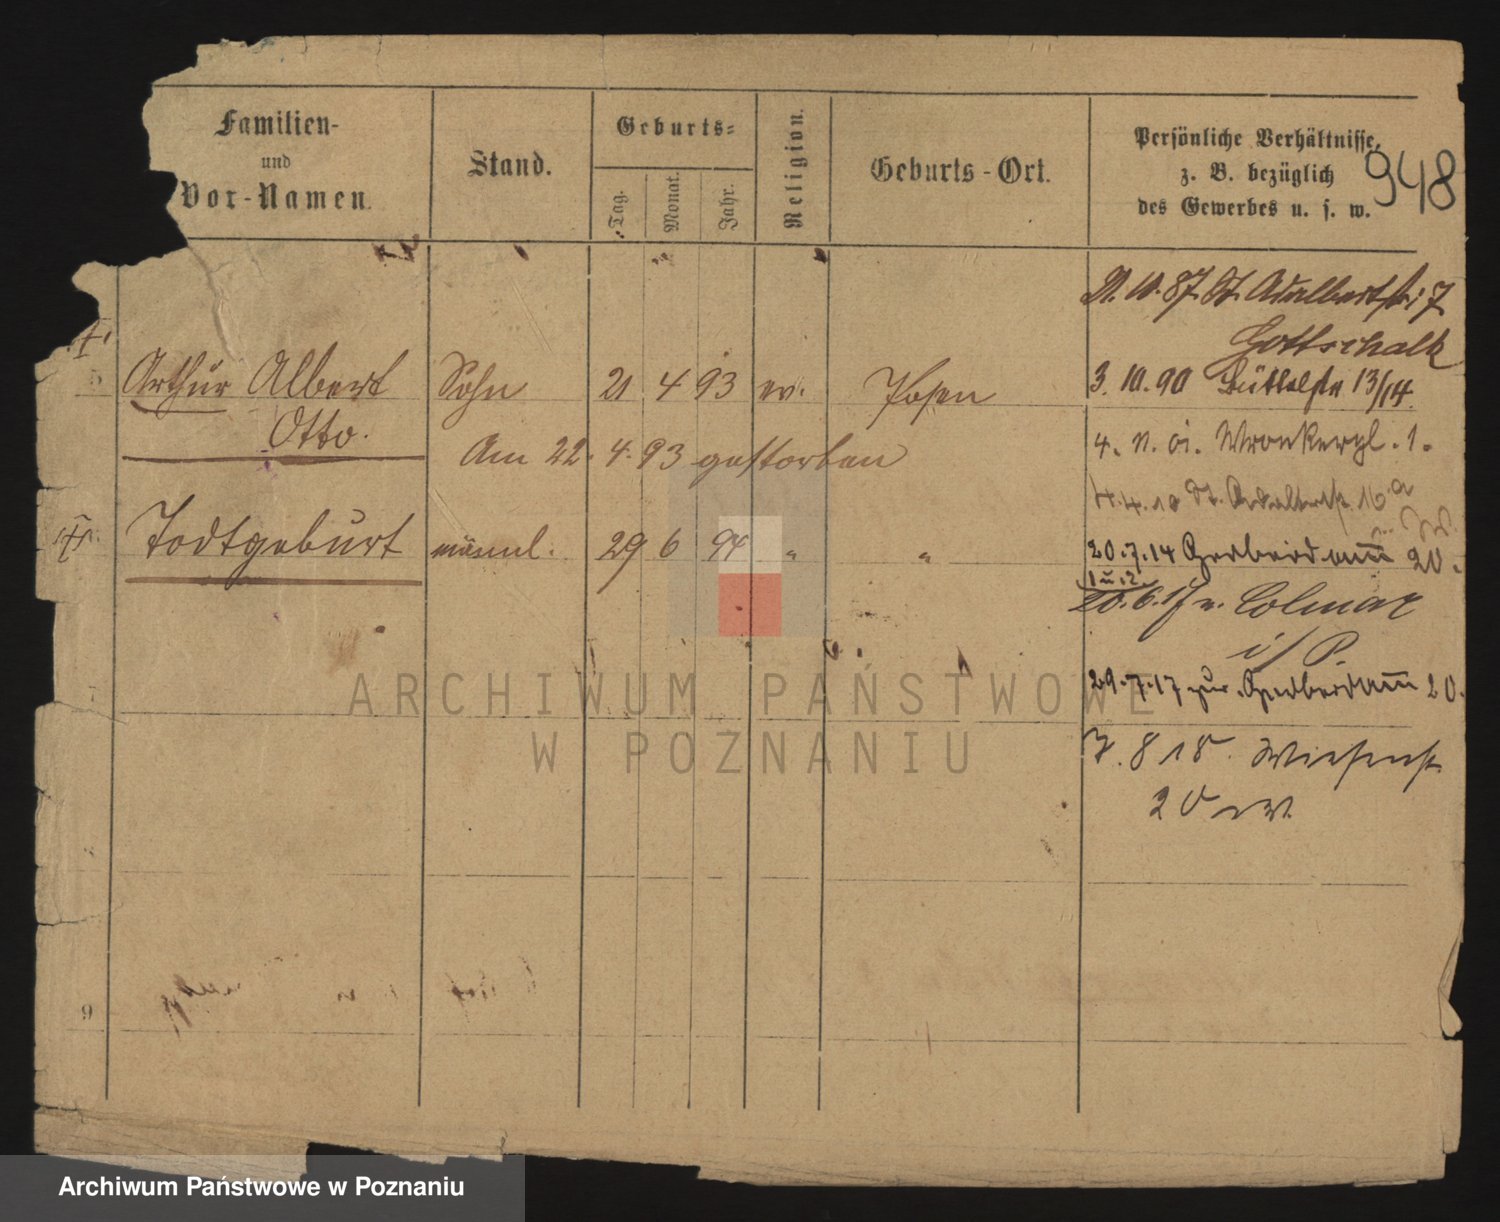 Familien-
und
Vor-Namen.
Stand.
Geburts-
Tag.
Monat.
Jahr.
Religion.
Geburts-Ort.
Persönliche Verhältnisse,
z. B. bezüglich
des Gewerbes u. s. w.
948
21. 10. 87. St. Adalbertstr. 7
Gottschalk
5 Arthur Albert Sohn 21 4 93 ev. Posen
Otto.
3. 10. 90 Büttelstr 13/14.
Am 22. 4. 93 gestorben
4. 11. 01. Wronkerpl. 1.
4. 4. 10 St. Adalbertstr. 16a
Todtgeburt männl. 29 6 94 " "
20. 7. 14 Gerberdamm 20.
1 u. 2.
20. 6. 17 n. Colmar
i/P.
7
29. 7. 17 zur. Gerberdamm 20.
7. 8 18. Wiesenstr.
20
9
ARCHIWUM PAŃSTWOWE
W POZNANIU
Archiwum Państwowe w Poznaniu